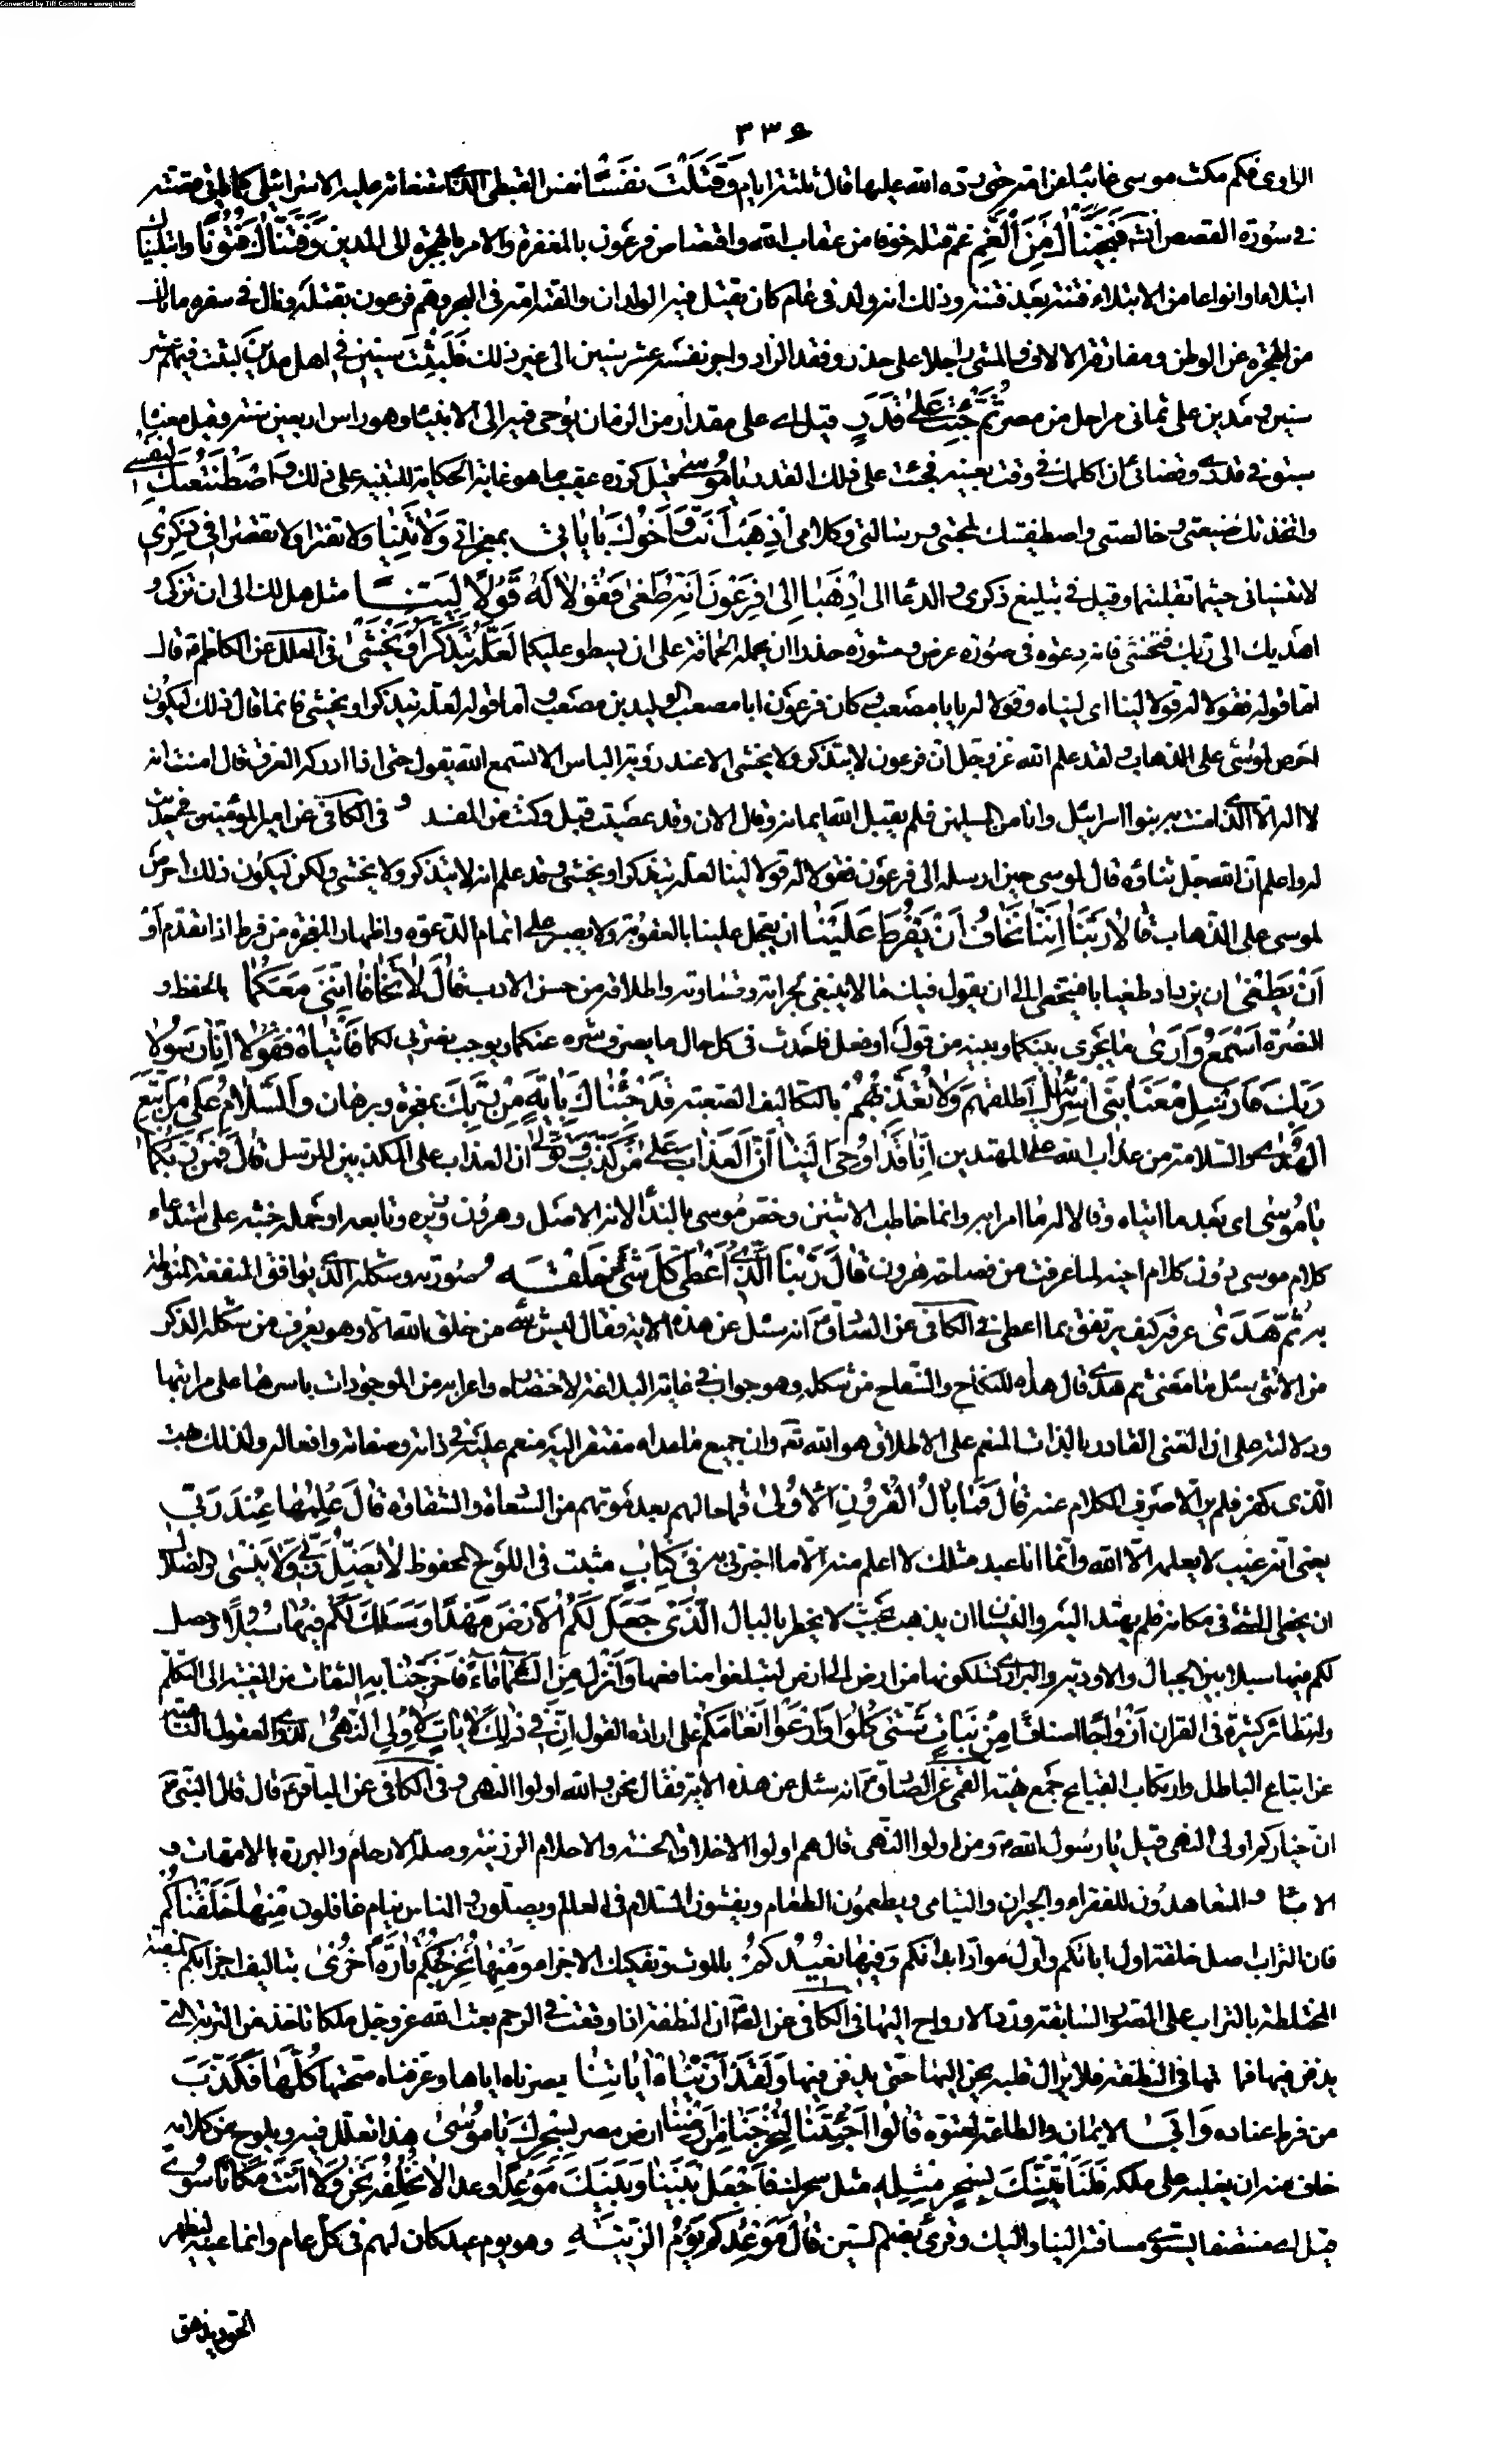 Converted by Tiff Combine - unregistered
٣٣٦
الراوى فكم مكث موسى غائبا عن امه حتى رده الله عليها قال ثلثة ايام وَقَتَلْتَ نَفْسًا نفس القبطى الذى استغاثه عليه الاسرائيلى كما يأتى قصته
فى سورة القصص انشه فَنَجَّيْنَاكَ مِنَ الْغَمِّ غم قتله خوفا من عقاب الله واقتصاص فرعون بالمغفرة والامر بالهجرة الى المدين وَفَتَنَّاكَ فُتُونًا وابتليناك
ابتلاءا وانواعا من الابتلاء فتنة بعد فتنة وذلك انه ولد فى عام كان يقتل فيه الولدان والقته امه فى البحر وهم فرعون بقتله ونال فى سفره ما ناله
من الهجرة عن الوطن ومفارقة الالاف والمشى راجلا على حذر وفقد الزاد واجر نفسه عشر سنين الى غير ذلك فَلَبِثْتَ سِنِينَ فِى اهل مَدْيَنَ لبثت فيهم عشر
سنين ومدين على ثمانى مراحل من مصر ثُمَّ جِئْتَ عَلَى قَدَرٍ قيل اى على مقدار من الزمان يوحى فيه الى الانبياء وهو راس اربعين سنة وقيل معناه
سبق فى قدرى وقضائى ان اكلمك فى وقت بعينه فجئت على ذلك القدر يَا مُوسَى قيل كرره عقيب ما هو غاية الحكاية للتنبيه على ذلك وَاصْطَنَعْتُكَ لِنَفْسِى
واتخذتك صنيعتى وخالصتى واصطفيتك لمحبتى ورسالتى وكلامى اذْهَبْ أَنْتَ وَأَخُوكَ بِآيَاتِى بمعجزاتى وَلَا تَنِيَا ولا تفترا ولا تقصرا فِى ذِكْرِى
لا تنسيانى حيثما تقلبتما وقيل فى تبليغ ذكرى والدعاء الى اذْهَبَا إِلَى فِرْعَوْنَ إِنَّهُ طَغَى فَقُولَا لَهُ قَوْلًا لَيِّنًا مثل هل لك الى ان تزكى و
اهديك الى ربك فتخشى فانه دعوه فى صورة عرض ومشورة حذرا ان يحمله الحماقة على ان يسطو عليكما لَعَلَّهُ يَتَذَكَّرُ أَوْ يَخْشَى فى العلل عن الكاظم قال
اما قوله فقولا له قولا لينا اى ليناه وقولا له يا ابا مصعب وكان فرعون ابا مصعب الوليد بن مصعب واما قوله لعله يتذكر او يخشى فانما قال ذلك ليكون
احرص لموسى على الذهاب ولقد علم الله عز وجل ان فرعون لا يتذكر ولا يخشى الا عند رؤية الباس الا تسمع الله يقول حتى اذا ادركه الغرق قال امنت انه
لا اله الا الذى امنت به بنوا اسرائيل وانا من المسلمين فلم يقبل الله ايمانه وقال الان وقد عصيت قبل وكنت من المفسد و فى الكافى عن امير المؤمنين فى حديث
له واعلم ان الله جل ثناؤه قال لموسى حين ارسله الى فرعون فقولا له قولا لينا لعله يتذكر او يخشى وقد علم انه لا يتذكر ولا يخشى ولكن ليكون ذلك احرص
لموسى على الذهاب قَالَا رَبَّنَا إِنَّنَا نَخَافُ أَنْ يَفْرُطَ عَلَيْنَا ان يعجل علينا بالعقوبة ولا يصبر على اتمام الدعوه واظهار المعجزة من فرط اذا تقدم أَوْ
أَنْ يَطْغَى ان يزداد طغيانا فيتخطى الى ان يقول فيك ما لا ينبغى لجراته وقساوته واطلاقه من حسن الادب قَالَ لَا تَخَافَا إِنَّنِى مَعَكُمَا بالحفظ و
النصرة أَسْمَعُ وَأَرَى ما يجرى بينكما وبينه من قول او فعل فاحدث فى كل حال ما يصرف شره عنكما ويوجب نصرتى لكما فَأْتِيَاهُ فَقُولَا إِنَّا رَسُولَا
رَبِّكَ فَأَرْسِلْ مَعَنَا بَنِى إِسْرَائِيلَ اطلقهم وَلَا تُعَذِّبْهُمْ بالتكاليف الصعبة قَدْ جِئْنَاكَ بِآيَةٍ مِنْ رَبِّكَ بمعجزة وبرهان وَالسَّلَامُ عَلَى مَنِ اتَّبَعَ
الْهُدَى والسلامة من عذاب الله على المهتدين إِنَّا قَدْ أُوحِىَ إِلَيْنَا أَنَّ الْعَذَابَ عَلَى مَنْ كَذَّبَ وَتَوَلَّى ان العذاب على المكذبين للرسل قَالَ فَمَنْ رَبُّكُمَا
يَا مُوسَى اى بعد ما اتياه وقالا له ما امرا به وانما خاطب الاثنين وخص موسى بالنداء لانه الاصل وهرون وزيره وتابعه او حمله خبثه على استدعاء
كلام موسى دون كلام اخيه لما عرف من فصاحة هرون قَالَ رَبُّنَا الَّذِى أَعْطَى كُلَّ شَىْءٍ خَلْقَهُ صورته وشكله الذى يوافق المنفعة المنوطة
به ثُمَّ هَدَى عرفه كيف يرتفق بما اعطى فى الكافى عن الصادق انه سئل عن هذه الاية فقال ليس شىء من خلق الله الا وهو يعرف من شكله الذكر
من الانثى سئل ما معنى ثم هدى قال هداه للنكاح والسفاح من شكله وهو جواب فى غاية البلاغة لاختصاره واعرابه عن الموجودات باسرها على مراتبها
ودلالته على ان الغنى القادر بالذات المنعم على الاطلاق هو الله تعه وان جميع ما عداه مفتقر اليه منعم عليه فى ذاته وصفاته وافعاله ولذلك بهت
الذى كفر فلم ير الا صرف الكلام عنه قَالَ فَمَا بَالُ الْقُرُونِ الْأُولَى فما حالهم بعد موتهم من السعادة والشقاوة قَالَ عِلْمُهَا عِنْدَ رَبِّى
يعنى انه غيب لا يعلمه الا الله وانما انا عبد مثلك لا اعلم منه الا ما اخبرنى به فِى كِتَابٍ مثبت فى اللوح المحفوظ لَا يَضِلُّ رَبِّى وَلَا يَنْسَى والضلال
ان يخطى الشىء فى مكانه فلم يهتد اليه والنسيان ان يذهب بحيث لا يخطر بالبال الَّذِى جَعَلَ لَكُمُ الْأَرْضَ مَهْدًا وَسَلَكَ لَكُمْ فِيهَا سُبُلًا وحصل
لكم فيها سبلا بين الجبال والاودية والبرارى تسلكونها من ارض الى ارض لتبلغوا منافعها وَأَنْزَلَ مِنَ السَّمَاءِ مَاءً فَأَخْرَجْنَا بِهِ التفات من الغيبة الى التكلم
وله نظائر كثيرة فى القران أَزْوَاجًا اصنافا مِنْ نَبَاتٍ شَتَّى كُلُوا وَارْعَوْا أَنْعَامَكُمْ على ارادة القول إِنَّ فِى ذَلِكَ لَآيَاتٍ لِأُولِى النُّهَى لذوى العقول الناهية
عن اتباع الباطل وارتكاب القبايح جمع نهية القمى عن الصادق انه سئل عن هذه الاية فقال نحن والله اولوا النهى وفى الكافى عن الباقر قال قال النبى
ان خياركم اولى النهى قيل يا رسول الله ومن اولوا النهى قال هم اولوا الاخلاق الحسنه والاحلام الرزينه وصلة الارحام والبررة بالامهات و
الاباء والمتعاهدون للفقراء والجيران واليتامى ويطعمون الطعام ويفشون السلام فى العالم ويصلون والناس نيام غافلون مِنْهَا خَلَقْنَاكُمْ
فان التراب اصل خلقة اول ابائكم واول مواد ابدانكم وَفِيهَا نُعِيدُكُمْ بالموت وتفكيك الاجزاء وَمِنْهَا نُخْرِجُكُمْ تَارَةً أُخْرَى بتاليف اجزائكم المتفتتة
المختلطة بالتراب على الصور السابقة ورد الارواح اليها فى الكافى عن الصه ان النطفة اذا وقعت فى الرحم بعث الله عز وجل ملكا فاخذ من التربة التى
يدفن فيها فماثها فى النطفة فلا يزال قلبه يحن اليها حتى يدفن فيها وَلَقَدْ أَرَيْنَاهُ آيَاتِنَا بصرناه اياها وعرفناه صحتها كُلَّهَا فَكَذَّبَ
من فرط عناده وَأَبَى الايمان والطاعة لعتوه قَالُوا أَجِئْتَنَا لِتُخْرِجَنَا مِنْ أَرْضِنَا ارض مصر بِسِحْرِكَ يَا مُوسَى هذا تعلل فيه ويلوح من كلامه
خاف منه ان يغلبه على ملكه فَلَنَأْتِيَنَّكَ بِسِحْرٍ مِثْلِهِ مثل سحرك فَاجْعَلْ بَيْنَنَا وَبَيْنَكَ مَوْعِدًا وعدا لَا نُخْلِفُهُ نَحْنُ وَلَا أَنْتَ مَكَانًا سُوًى
قيل اى منتصفا يستوى مسافته الينا واليك وقرئ بضم السين قَالَ مَوْعِدُكُمْ يَوْمُ الزِّينَةِ وهو يوم عيد كان لهم فى كل عام وانما عينه ليظهر
الحق ويزهق